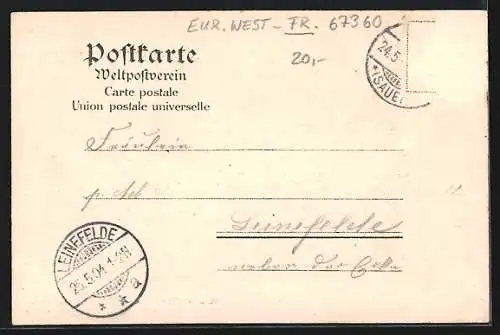 EUR. WEST - FR. 67360
20,-
Postkarte
Weltpostverein
Carte postale
Union postale universelle
24.5.
*(SAUE
Fräulein
Leinefelde
neben der
LEINEFELDE
25.5.04.1-2N
* * a